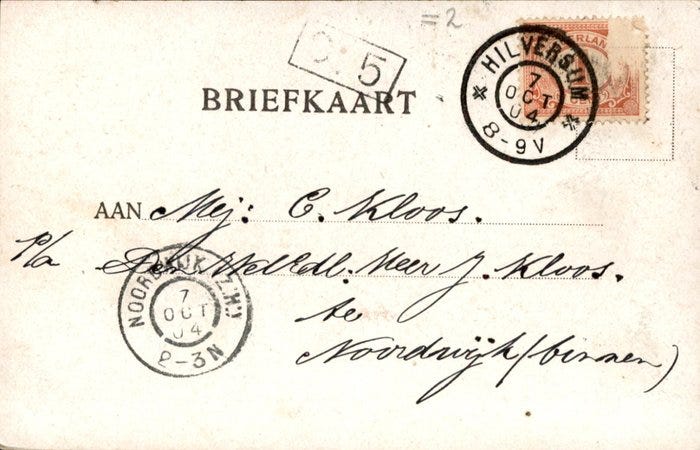 =2
5
ERLAN
HILVERSUM
7
OCT
04
8-9V
BRIEFKAART
AAN Mej: C. Kloos.
P/a Den WelEdl. Heer J. Kloos.
te
Noordwijk (binnen)
NOORDWIJK (Z.H.)
7
OCT
04
2-3N